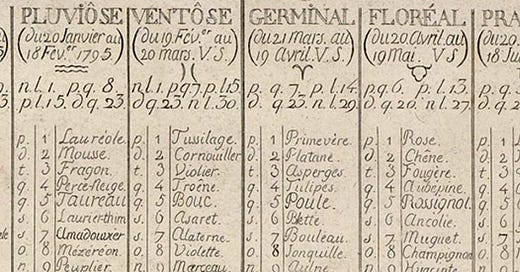 PLUVIÔSE
(du 20 Janvier au
18 Fév.er 1795.)
n.l. 1. p.q. 8.
p.l. 15. d.q. 23.
p. 1 Lauréole.
d. 2 Mousse.
t. 3 Fragon.
q. 4 Perce-neige.
q. 5 Taureau
s. 6 Laurier-thim
s. 7 Amadouvier
o. 8 Mézéréon.
n. 9 Peuplier
VENTÔSE
(du 19 Fév.er au
20 mars. V.S.)
n.l. 1. p.q 7. p.l. 15.
d.q 23. n.l. 30.
p. 1 Tusilage.
d. 2 Cornouiller
t. 3 Violier.
q. 4 Troène.
q. 5 Bouc.
s. 6 Asaret.
s. 7 Alaterne.
o. 8 Violette.
n. 9 Marceau.
GERMINAL
(du 21 mars. au
19 Avril. V.S.)
p. q. 7. p.l. 14.
d.q 23 n.l. 29.
p. 1 Primevère.
d. 2 Platane.
t. 3 Asperges.
q. 4 Tulipes.
q. 5 Poule.
s. 6 Blette.
s. 7 Bouleau.
o. 8 Jonquille.
n. 9 Aulne
FLORÉAL
(du 20. Avril. au
19 Mai. V.S)
p.q. 6. p.l. 13.
d.q. 20. n.l. 27.
p. 1 Rose.
d. 2 Chêne.
t. 3 Fougère.
q. 4 Aubépine.
q. 5 Rossignol.
s. 6 Ancolie.
s. 7 Muguet.
o. 8 Champignon
PRA
(du 20
18 Ju
p.
d.
t.
q.
q.
s.
s.
o.